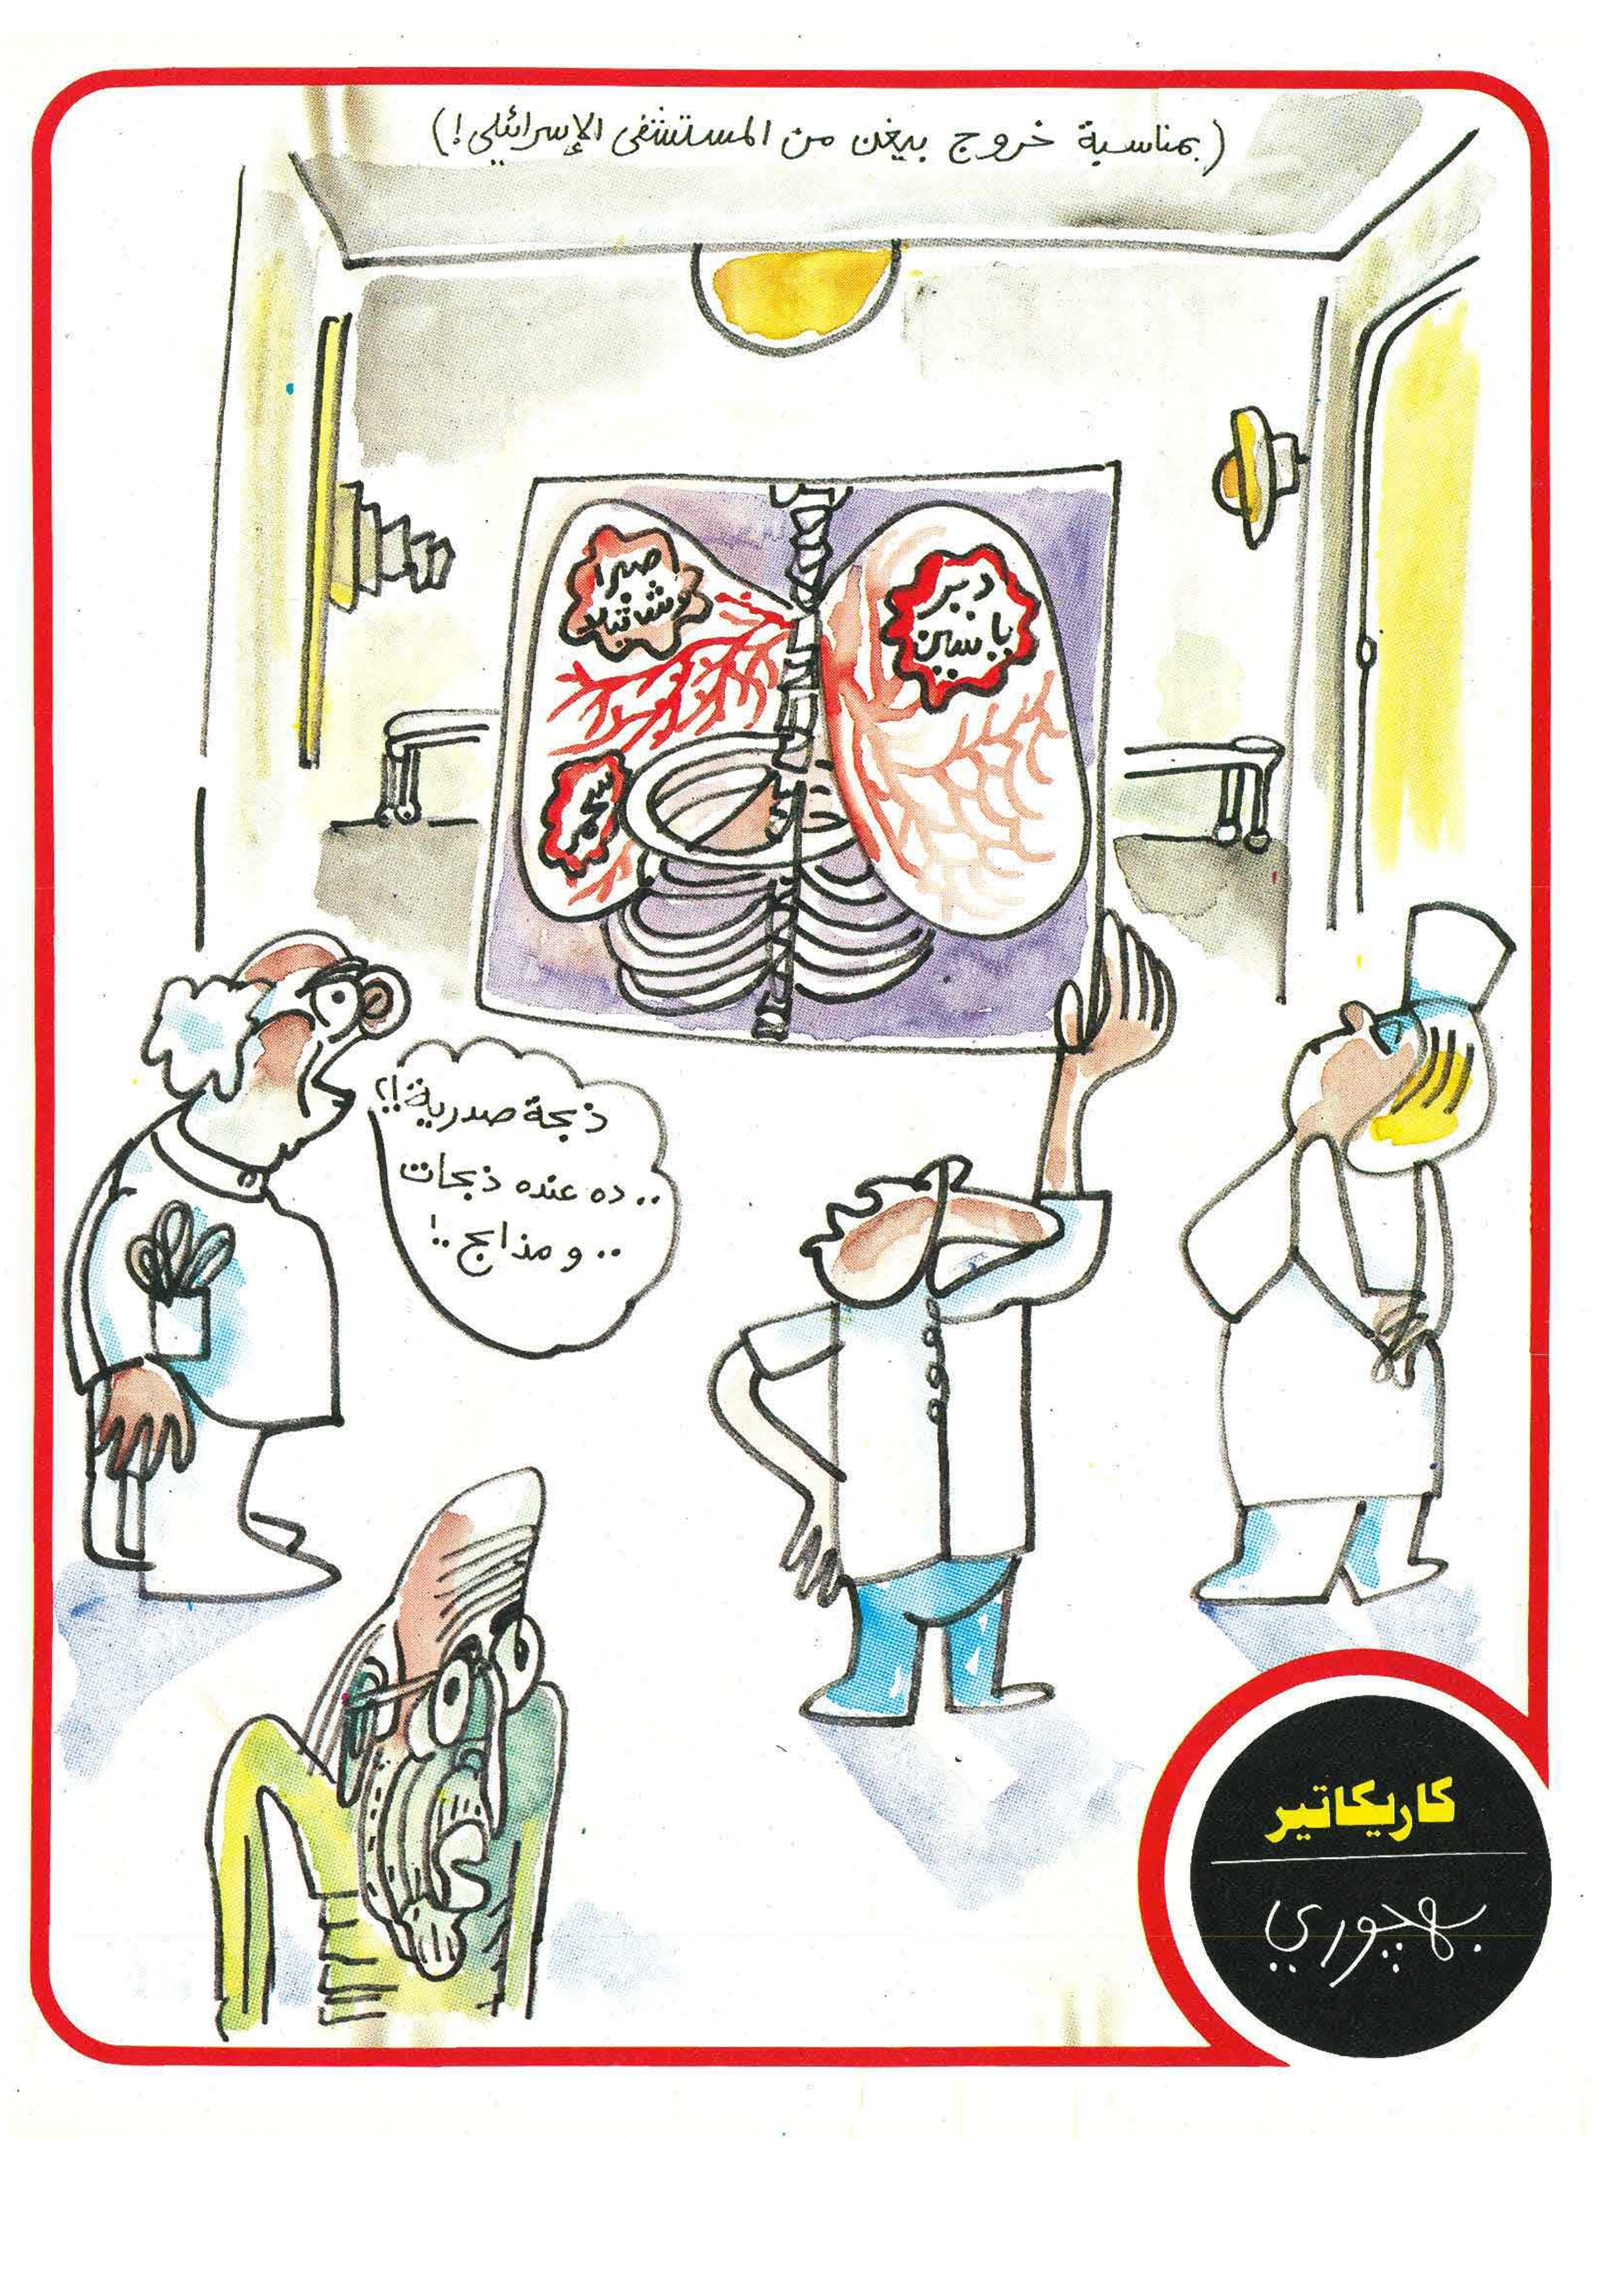 (بمناسبة خروج بيغن من المستشفى الإسرائيلي!)
دير
ياسين
صبرا
وشاتيلا
ذبحة صدرية!!؟
.. ده عنده ذبحات
.. و مذابح ..!
كاريكاتير
بهجوري